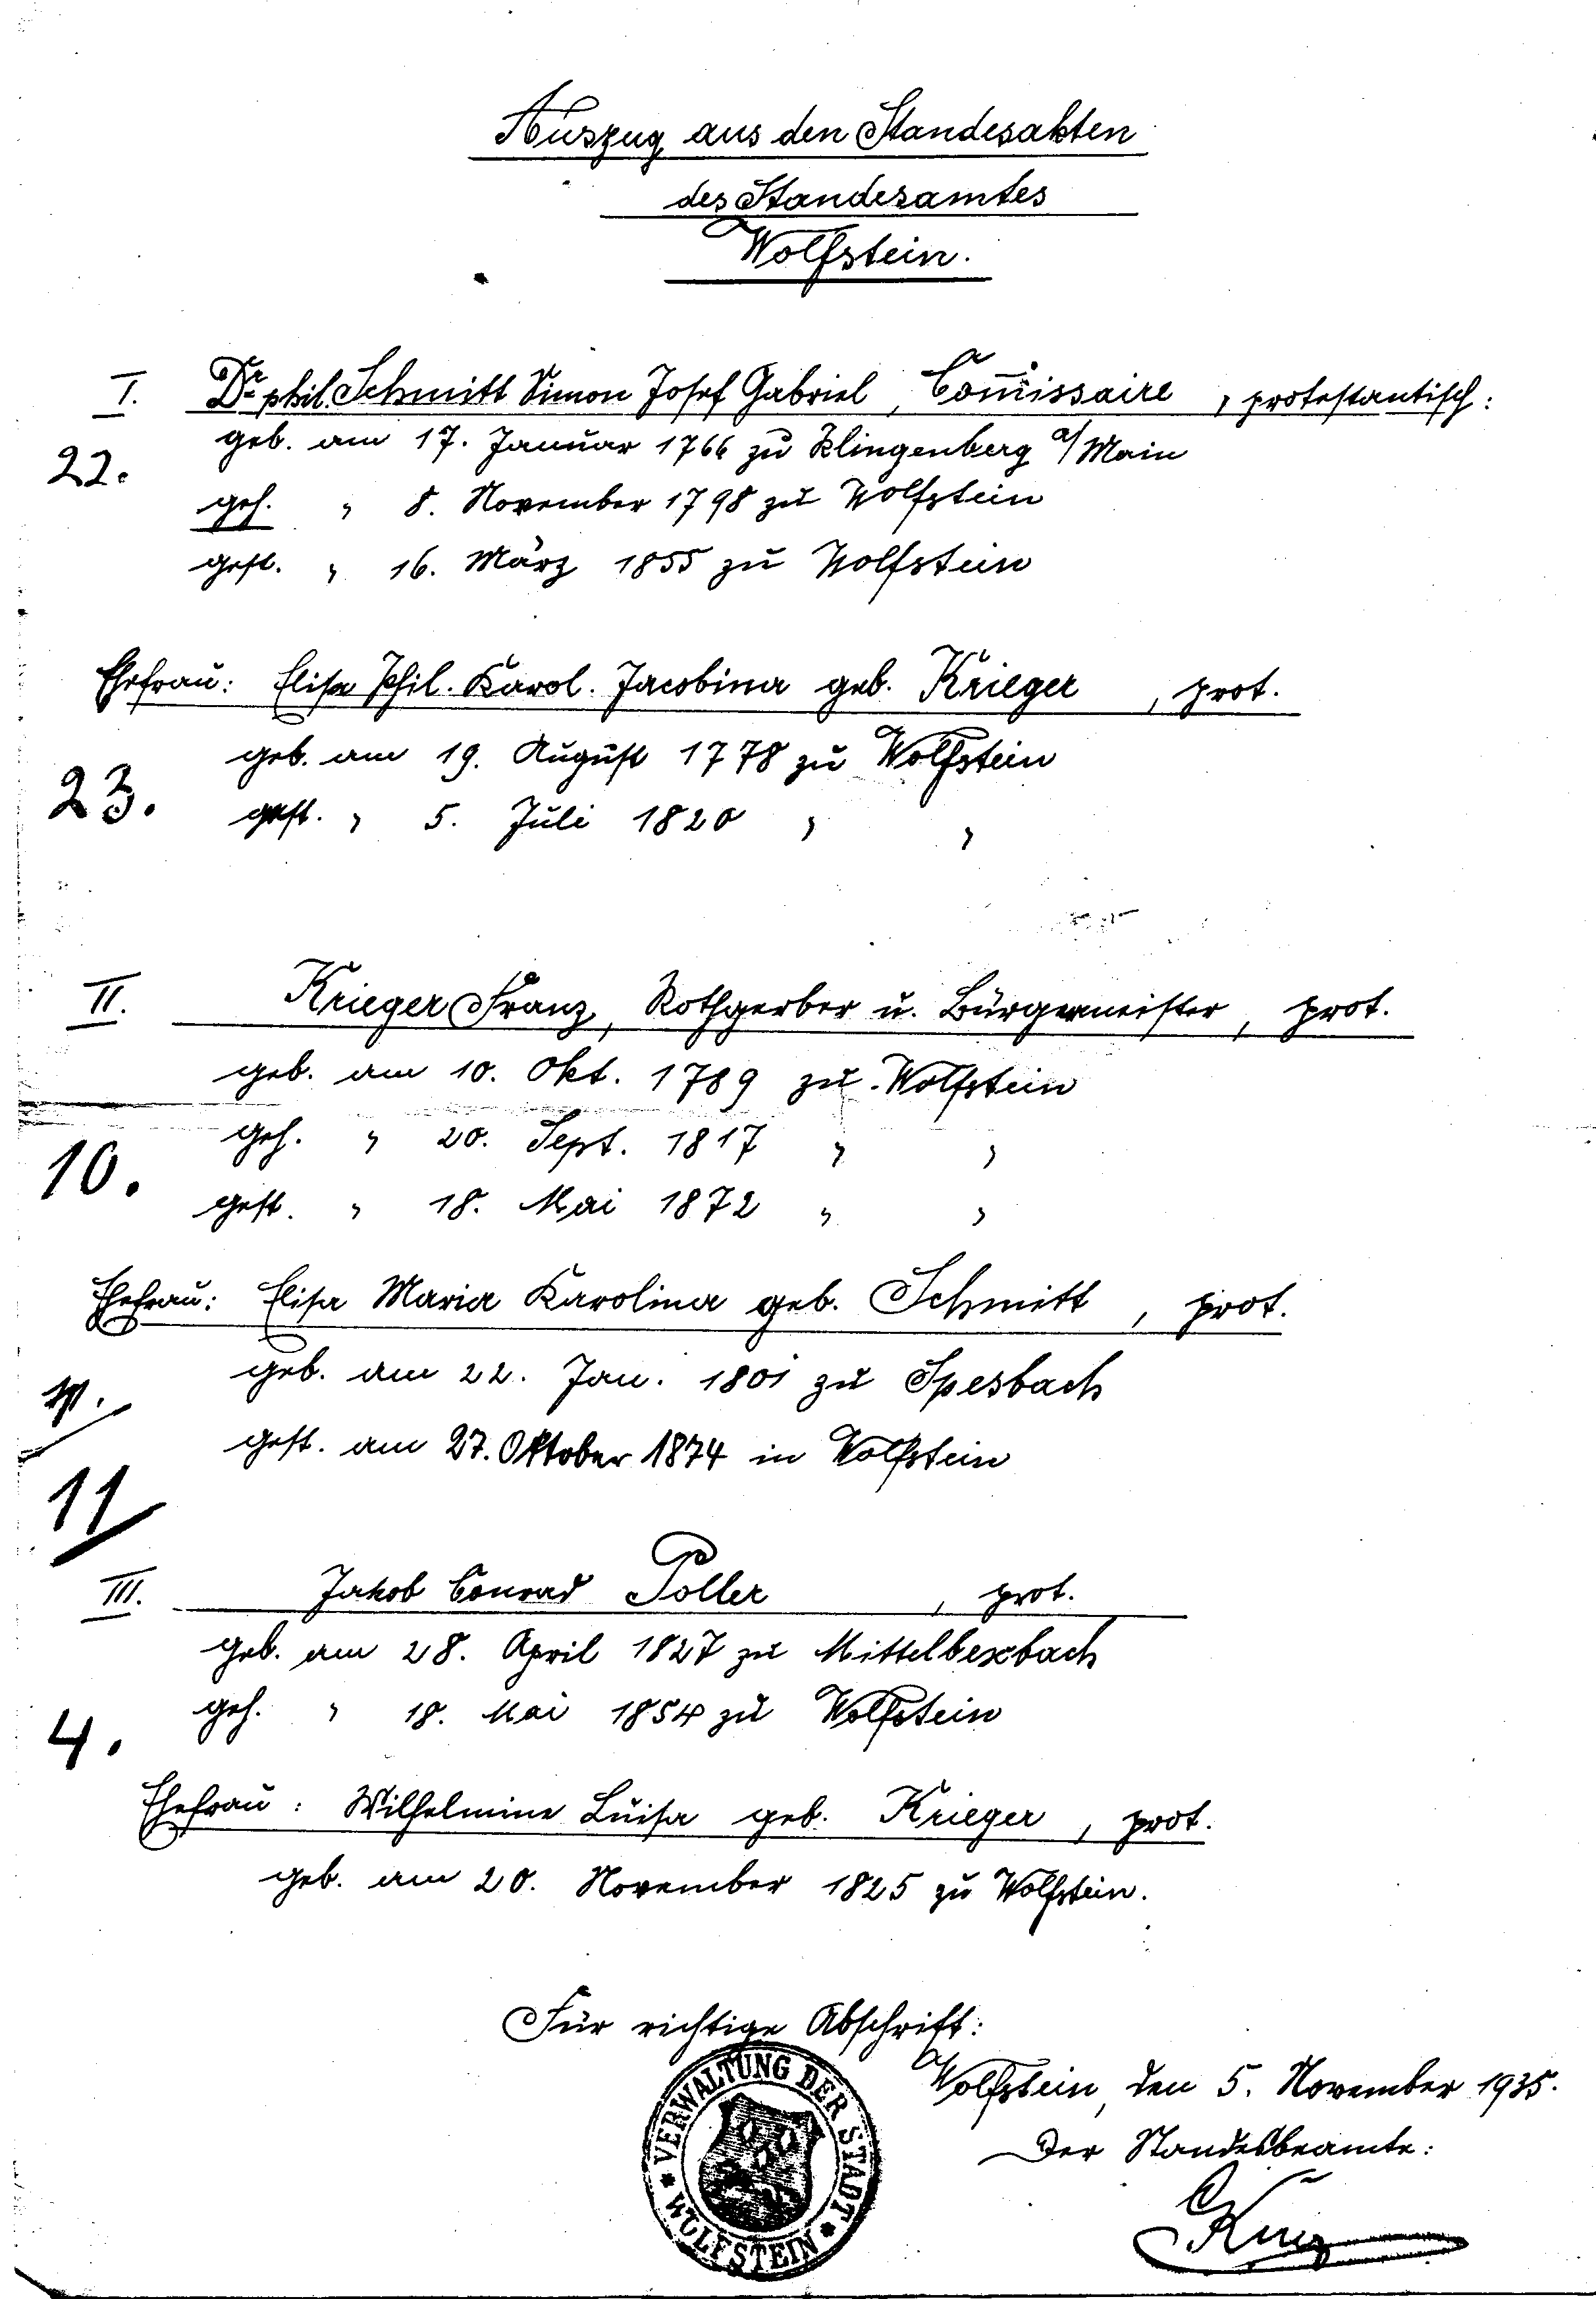 Auszug aus den Standesakten
des Standesamtes
Wolfstein.
I. Dr phil. Schmitt Simon Josef Gabriel, Com̅issaire, protestantisch:
22.
geb. am 17. Januar 1766 zu Klingenberg a/Main
geh. " 8. November 1798 zu Wolfstein
gest. " 16. März 1855 zu Wolfstein
Ehefrau: Elisa Phil. Karol. Jacobina geb. Krieger, prot.
23.
geb. am 19. August 1778 zu Wolfstein
gest. " 5. Juli 1820 " "
II. Krieger Franz, Rothgerber u. Bürgermeister, prot.
geb. am 10. Okt. 1789 zu Wolfstein
10.
geh. " 20. Sept. 1817 " "
gest. " 18. Mai 1872 " "
Ehefrau: Elisa Maria Karolina geb. Schmitt, prot.
geb. am 22. Jan. 1801 zu Spesbach
gest. am 27. Oktober 1874 in Wolfstein
11
III. Jakob Conrad Poller, prot.
geb. am 28. April 1827 zu Mittelbexbach
4.
geh. " 18. Mai 1854 zu Wolfstein
Ehefrau: Wilhelmine Luisa geb. Krieger, prot.
geb. am 20. November 1825 zu Wolfstein.
Für richtige Abschrift:
Wolfstein, den 5. November 1935.
Der Standesbeamte:
VERWALTUNG DER STADT
* WOLFSTEIN *